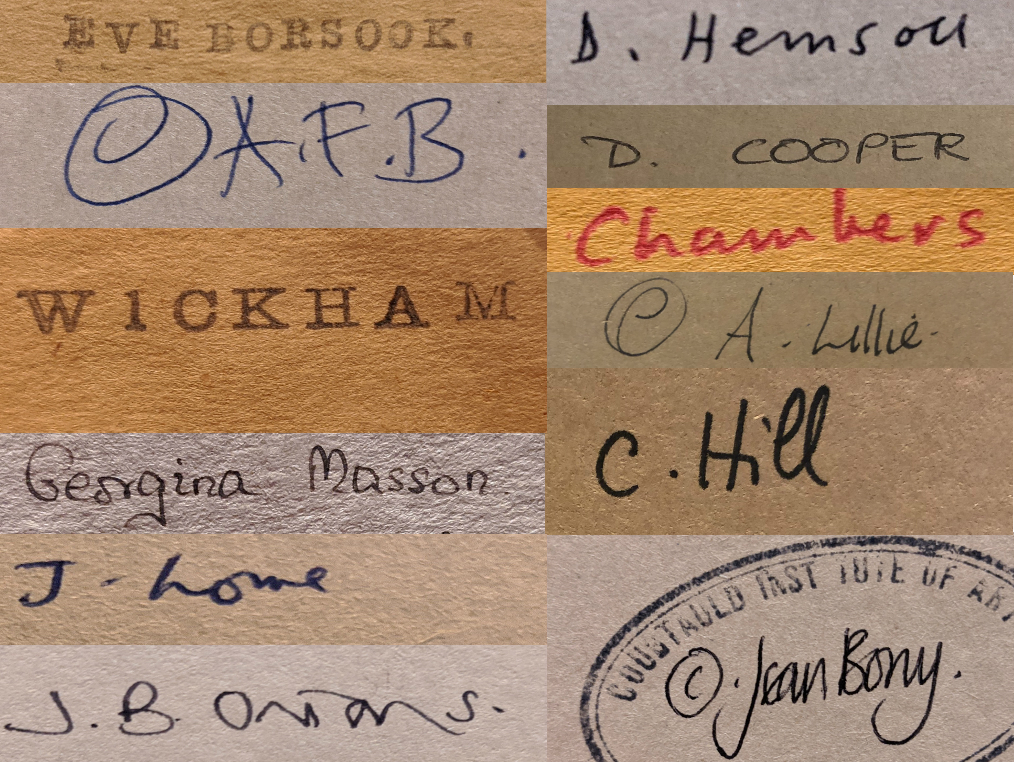 EVE BORSOOK.
© A.F.B.
W1CKHAM
Georgina Masson.
J. Lowe
J.B. Onians.
D. Hemsoll
D. COOPER
Chambers
© A. Lillie.
C. Hill
COURTAULD INSTITUTE OF AR
©. Jean Bony.